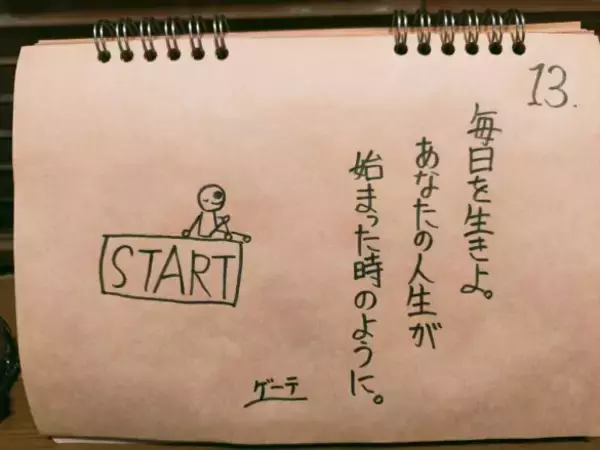 13.
毎日を生きよ。
あなたの人生が
始まった時のように。
ゲーテ
START